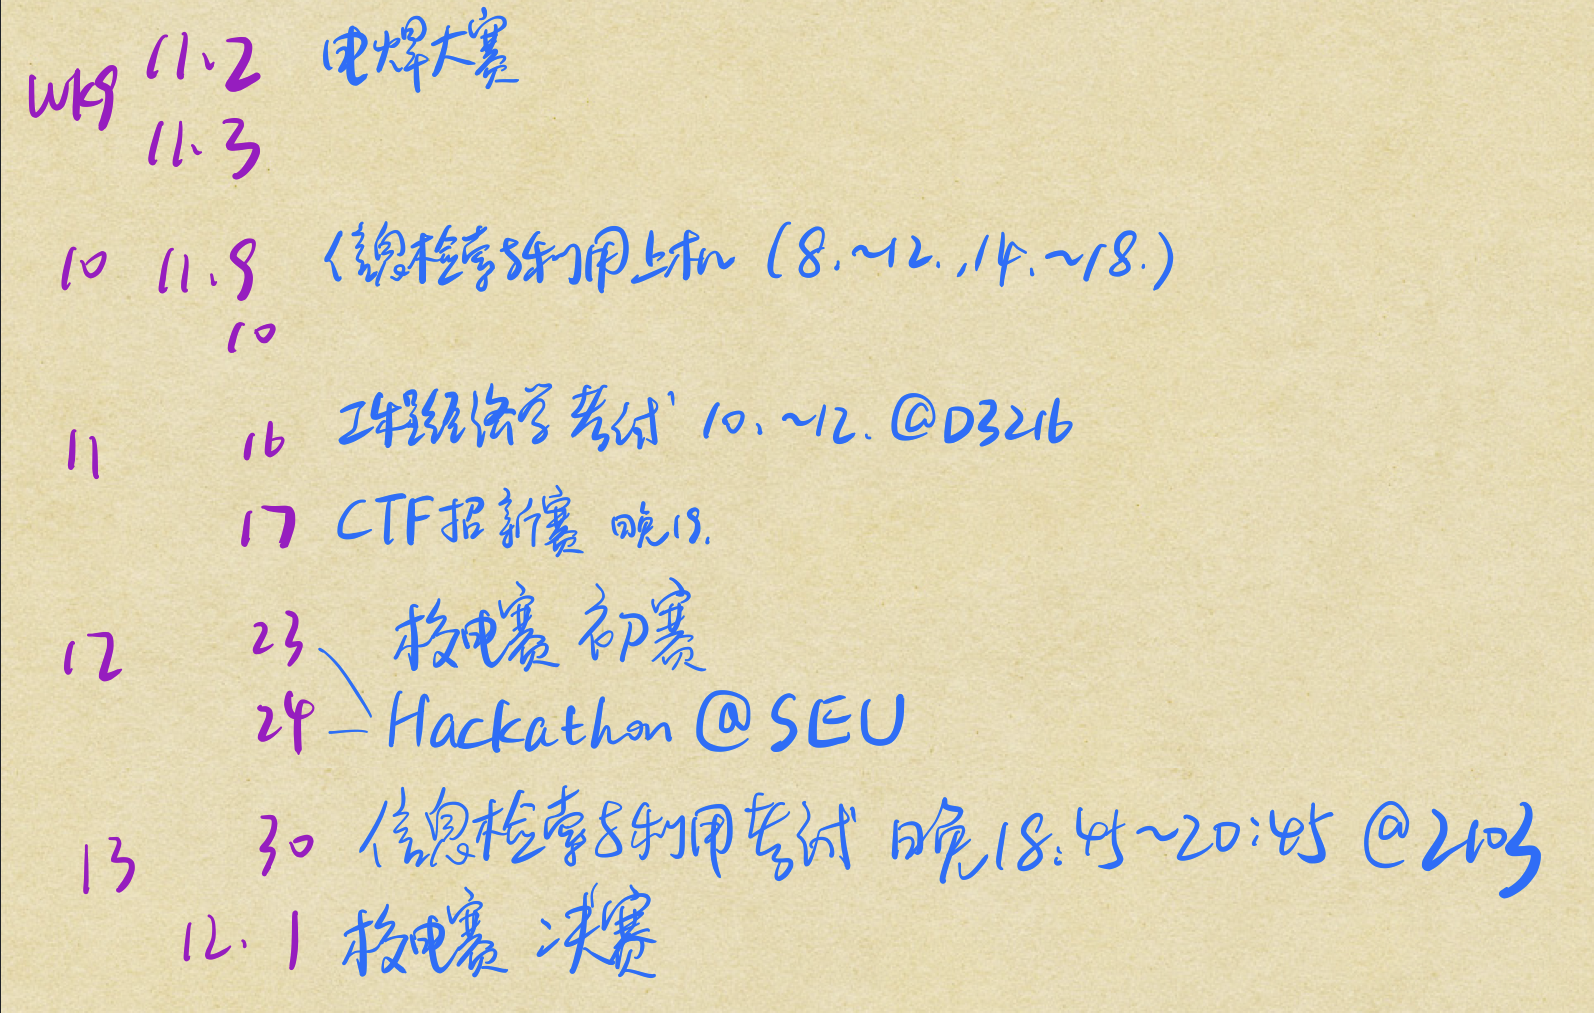 wk9 11.2 电焊大赛
11.3
10 11.9 信息检索与利用上机 (8.~12.,14.~18.)
10
11 16 工程经济学考试 10.~12. @D3216
17 CTF招新赛 晚19.
12 23 校电赛 初赛
24 Hackathon @SEU
13 30 信息检索与利用考试 晚18:45~20:45 @2103
12.1 校电赛 决赛